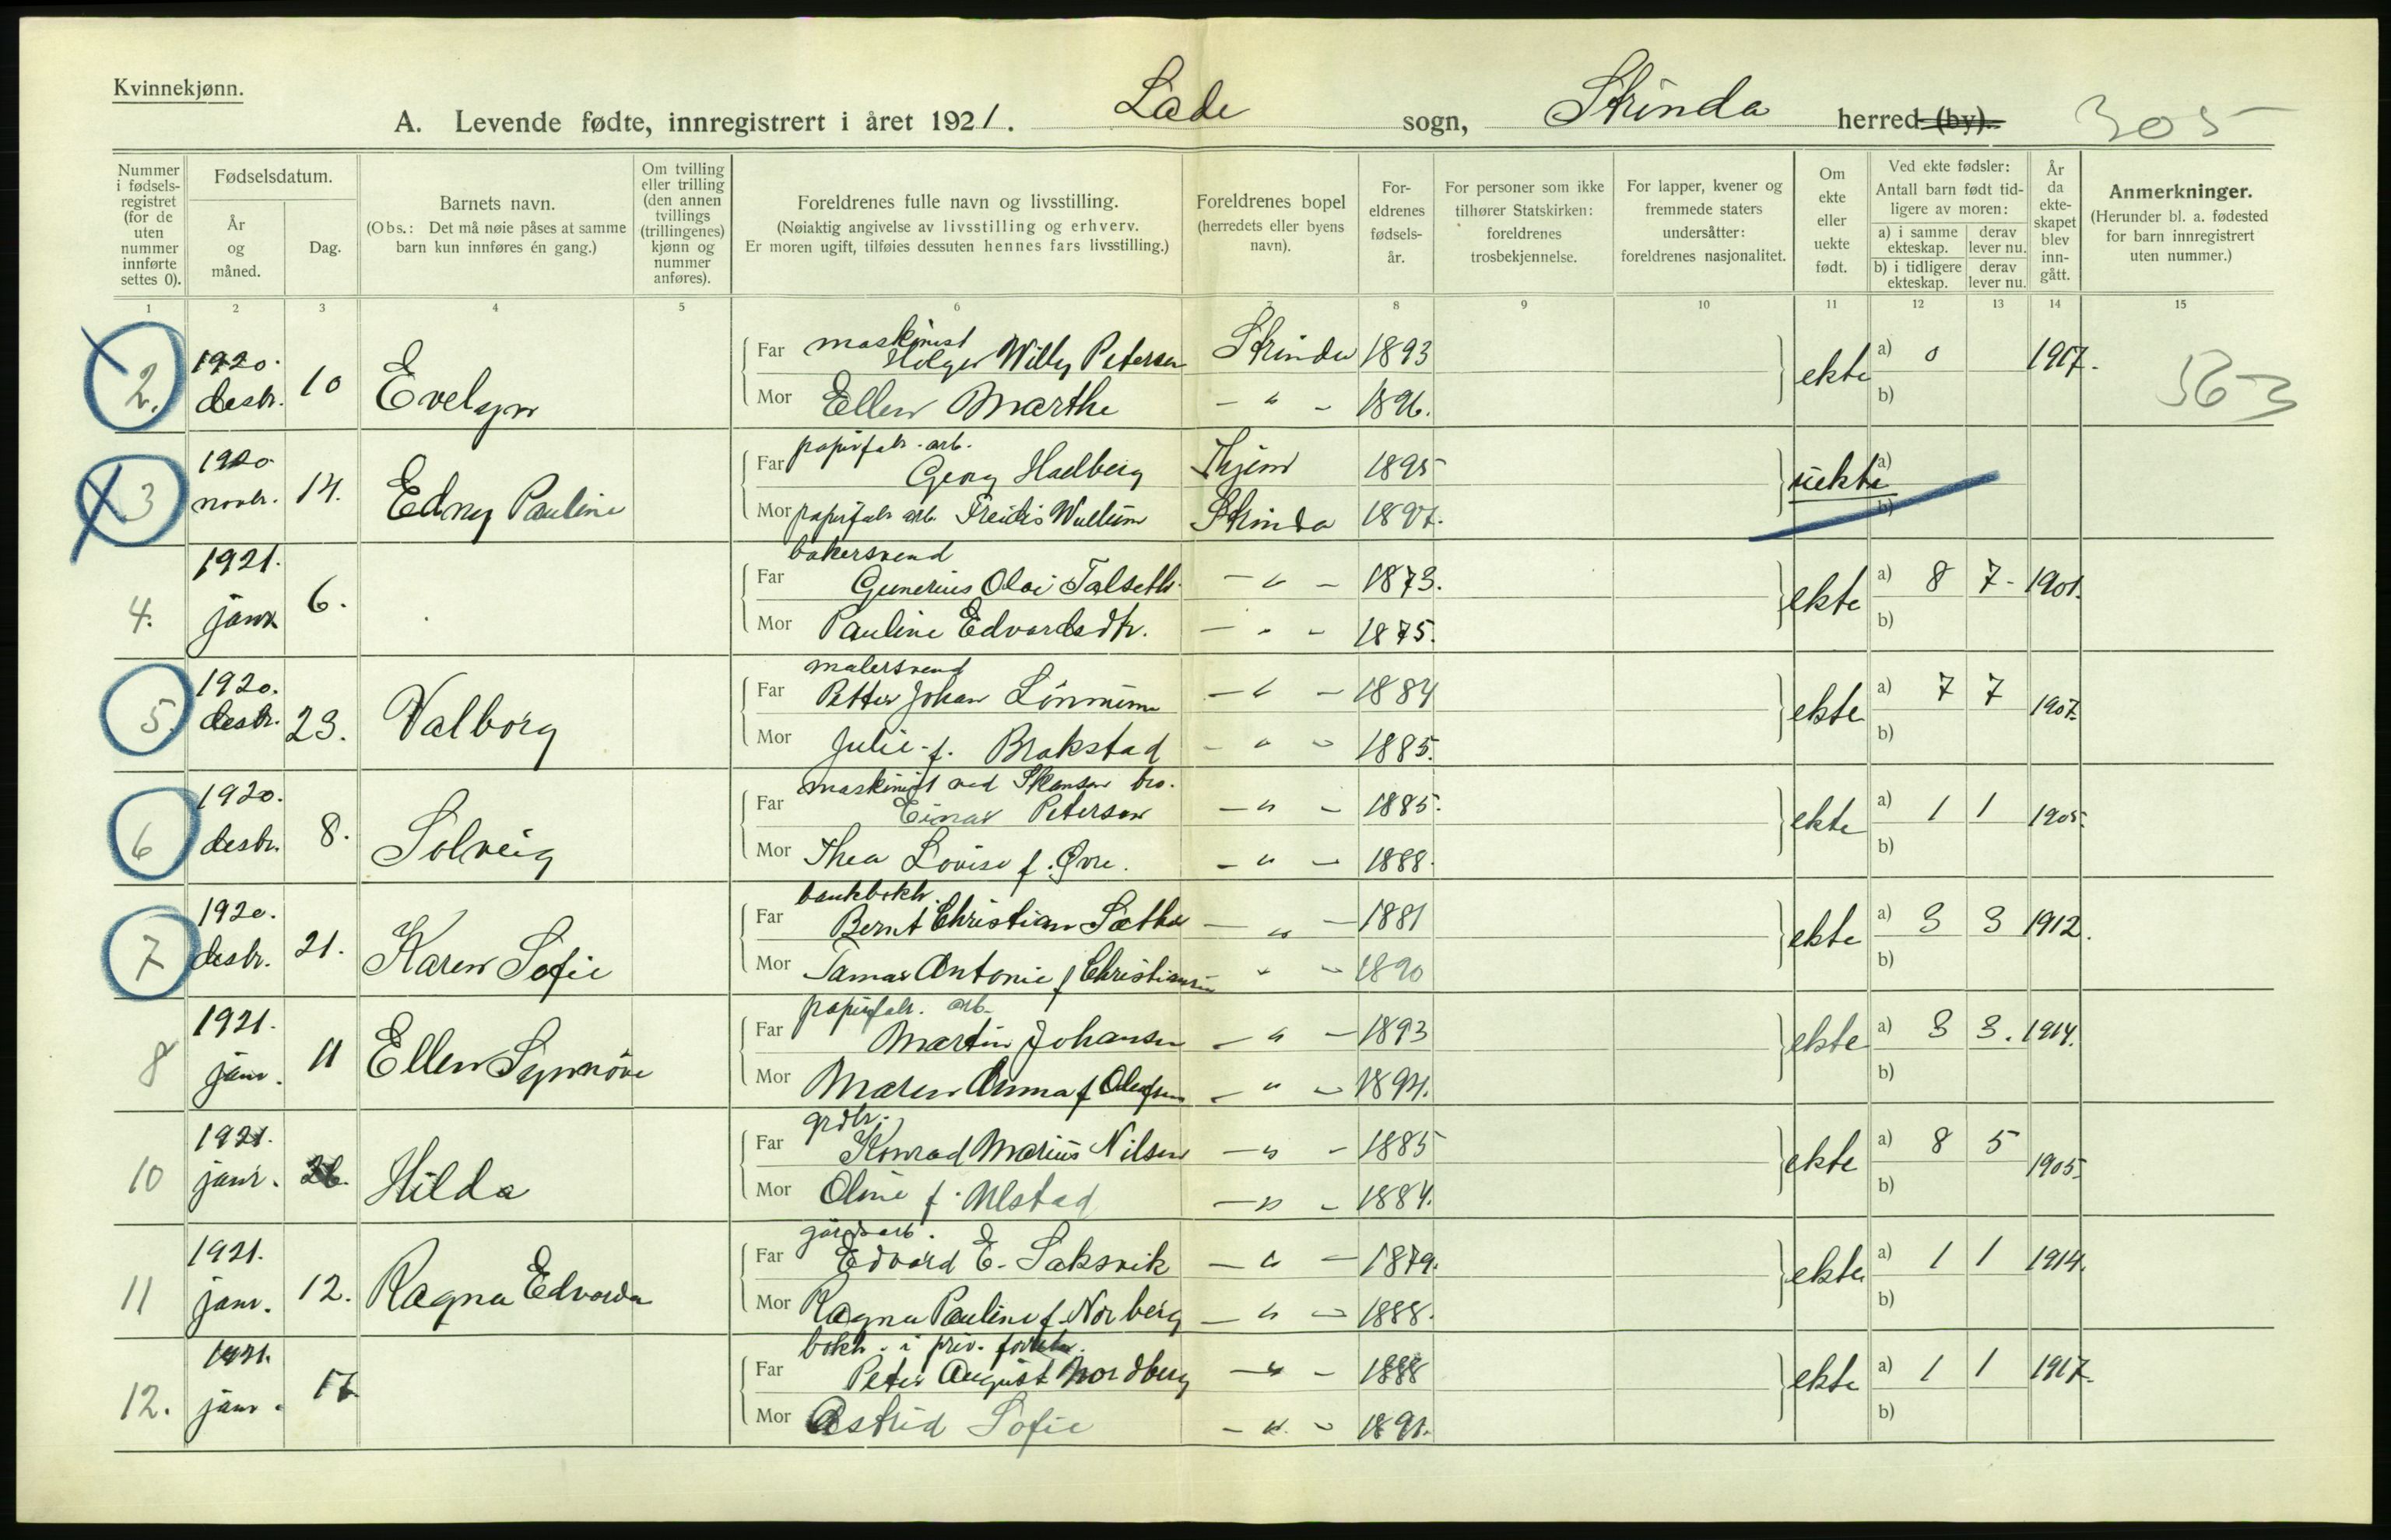 Kvinnekjønn.
A. Levende fødte, innregistrert i året 1921. Lade sogn, Strinda herred (by). 305
Nummer i fødsels-registret (for de uten nummer innførte settes 0).
Fødselsdatum.
År og måned.
Dag.
Barnets navn.
(Obs.: Det må nøie påses at samme barn kun innføres én gang.)
Om tvilling eller trilling (den annen tvillings (trillingenes) kjønn og nummer anføres).
Foreldrenes fulle navn og livsstilling.
(Nøiaktig angivelse av livsstilling og erhverv.
Er moren ugift, tilføies dessuten hennes fars livsstilling.)
Foreldrenes bopel (herredets eller byens navn).
For-eldrenes fødsels-år.
For personer som ikke tilhører Statskirken: foreldrenes trosbekjennelse.
For lapper, kvener og fremmede staters undersåtter: foreldrenes nasjonalitet.
Om ekte eller uekte født.
Ved ekte fødsler:
Antall barn født tid-ligere av moren:
a) i samme ekteskap. derav lever nu.
b) i tidligere ekteskap. derav lever nu.
År da ekte-skapet blev inn-gått.
Anmerkninger.
(Herunder bl. a. fødested for barn innregistrert uten nummer.)
1 2 3 4 5 6 7 8 9 10 11 12 13 14 15
2. 1920. desbr. 10 Evelyn
Far maskinist Holger Willy Petersen Strinda 1893
Mor Ellen Marthe — " — 1896.
ekte a) 0 1917. b)
563
3 1920 novbr. 14. Edny Pauline
Far papirfabr. arb. Georg Hadberg Thjem 1895
Mor papirfabr. arb. Freidis Wullum Strinda 1897.
uekte a) b)
4. 1921. janr. 6.
Far bakersvend Gunerius Olai Talseth — " — 1873.
Mor Pauline Edvardsdtr. — " — 1875.
ekte a) 8 7 1901. b)
5. 1920. desbr. 23. Valborg
Far malersvend Petter Johan Lönnum — " — 1884
Mor Julie f. Brakstad — " — 1885.
ekte a) 7 7 1907. b)
6 1920. desbr. 8. Solveig
Far maskinist ved Skansen bro. Einar Petersen — " — 1885.
Mor Thea Lovise f. Øvre. — " — 1888.
ekte a) 1 1 1905. b)
7 1920. desbr. 21. Karen Sofie
Far bankbokh. Bernt Christian Sæther — " — 1881
Mor Tamar Antonie f Christiansen " — 1890
ekte a) 3 3 1912. b)
8 1921. janr. 11 Ellen Synnöve
Far papirfabr. arb. Martin Johansen — " — 1893
Mor Maren Anna f Olafsen — " — 1894.
ekte a) 3 3. 1914. b)
10 1921. janr. 26. Hilda
Far grdbr. Konrad Marius Nilsen — " — 1885
Mor Oline f. Ulstad — " — 1884.
ekte a) 8 5 1905. b)
11 1921. janr. 12. Ragna Edvarda
Far gårdsarb. Edvard E. Saksvik — " — 1879.
Mor Ragna Pauline f. Norberg — " — 1888.
ekte a) 1 1 1914. b)
12. 1921. janr.
Far bokh. i priv. Peter August Nordberg — " — 1888
Mor Astrid Sofie — " — 1891.
ekte a) 1 1 1917. b)